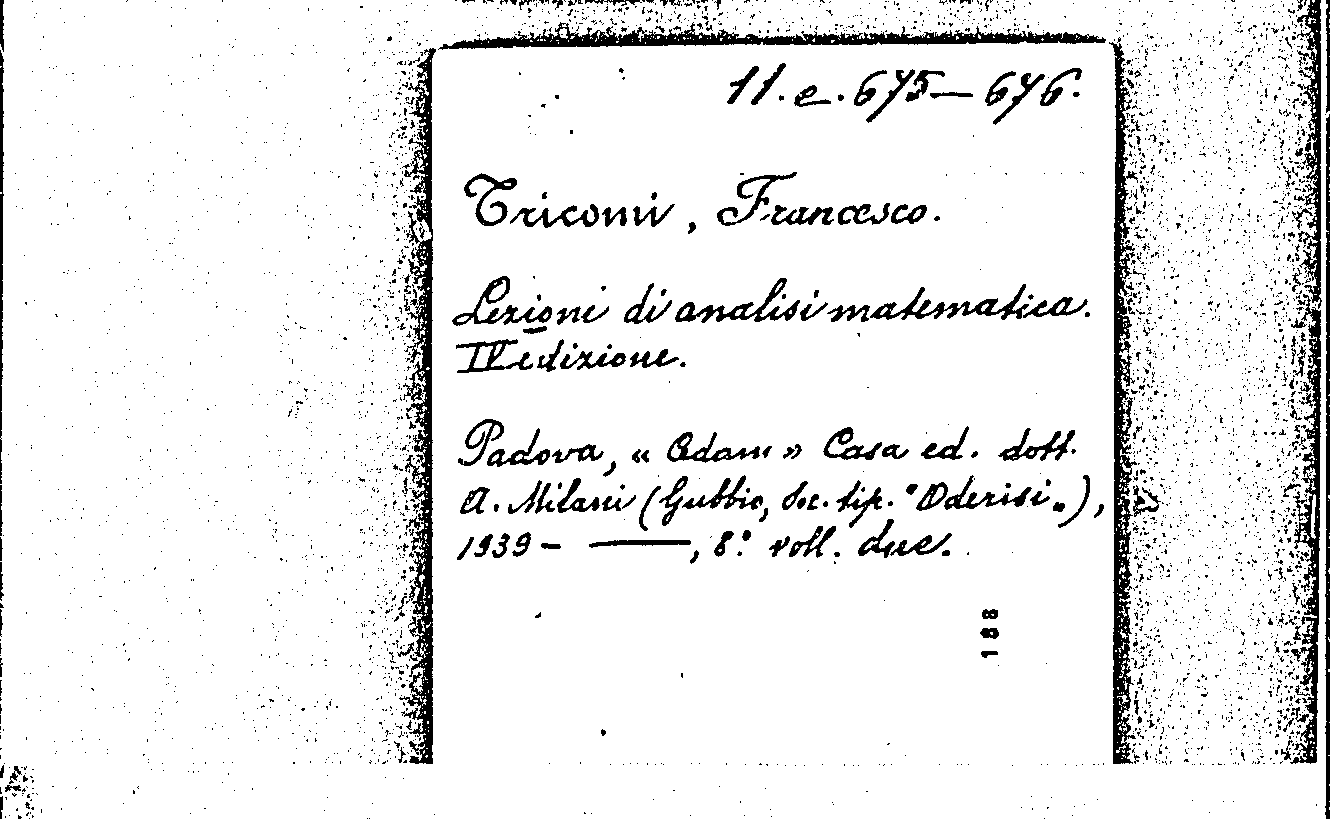 11. e. 675 — 676.
Tricomi, Francesco.
Lezioni di analisi matematica.
IV edizione.
Padova, « Cedam » Casa ed. dott.
A. Milani (Gubbio, Soc. tip. "Oderisi„),
1939 - ——, 8.° voll. due.
188